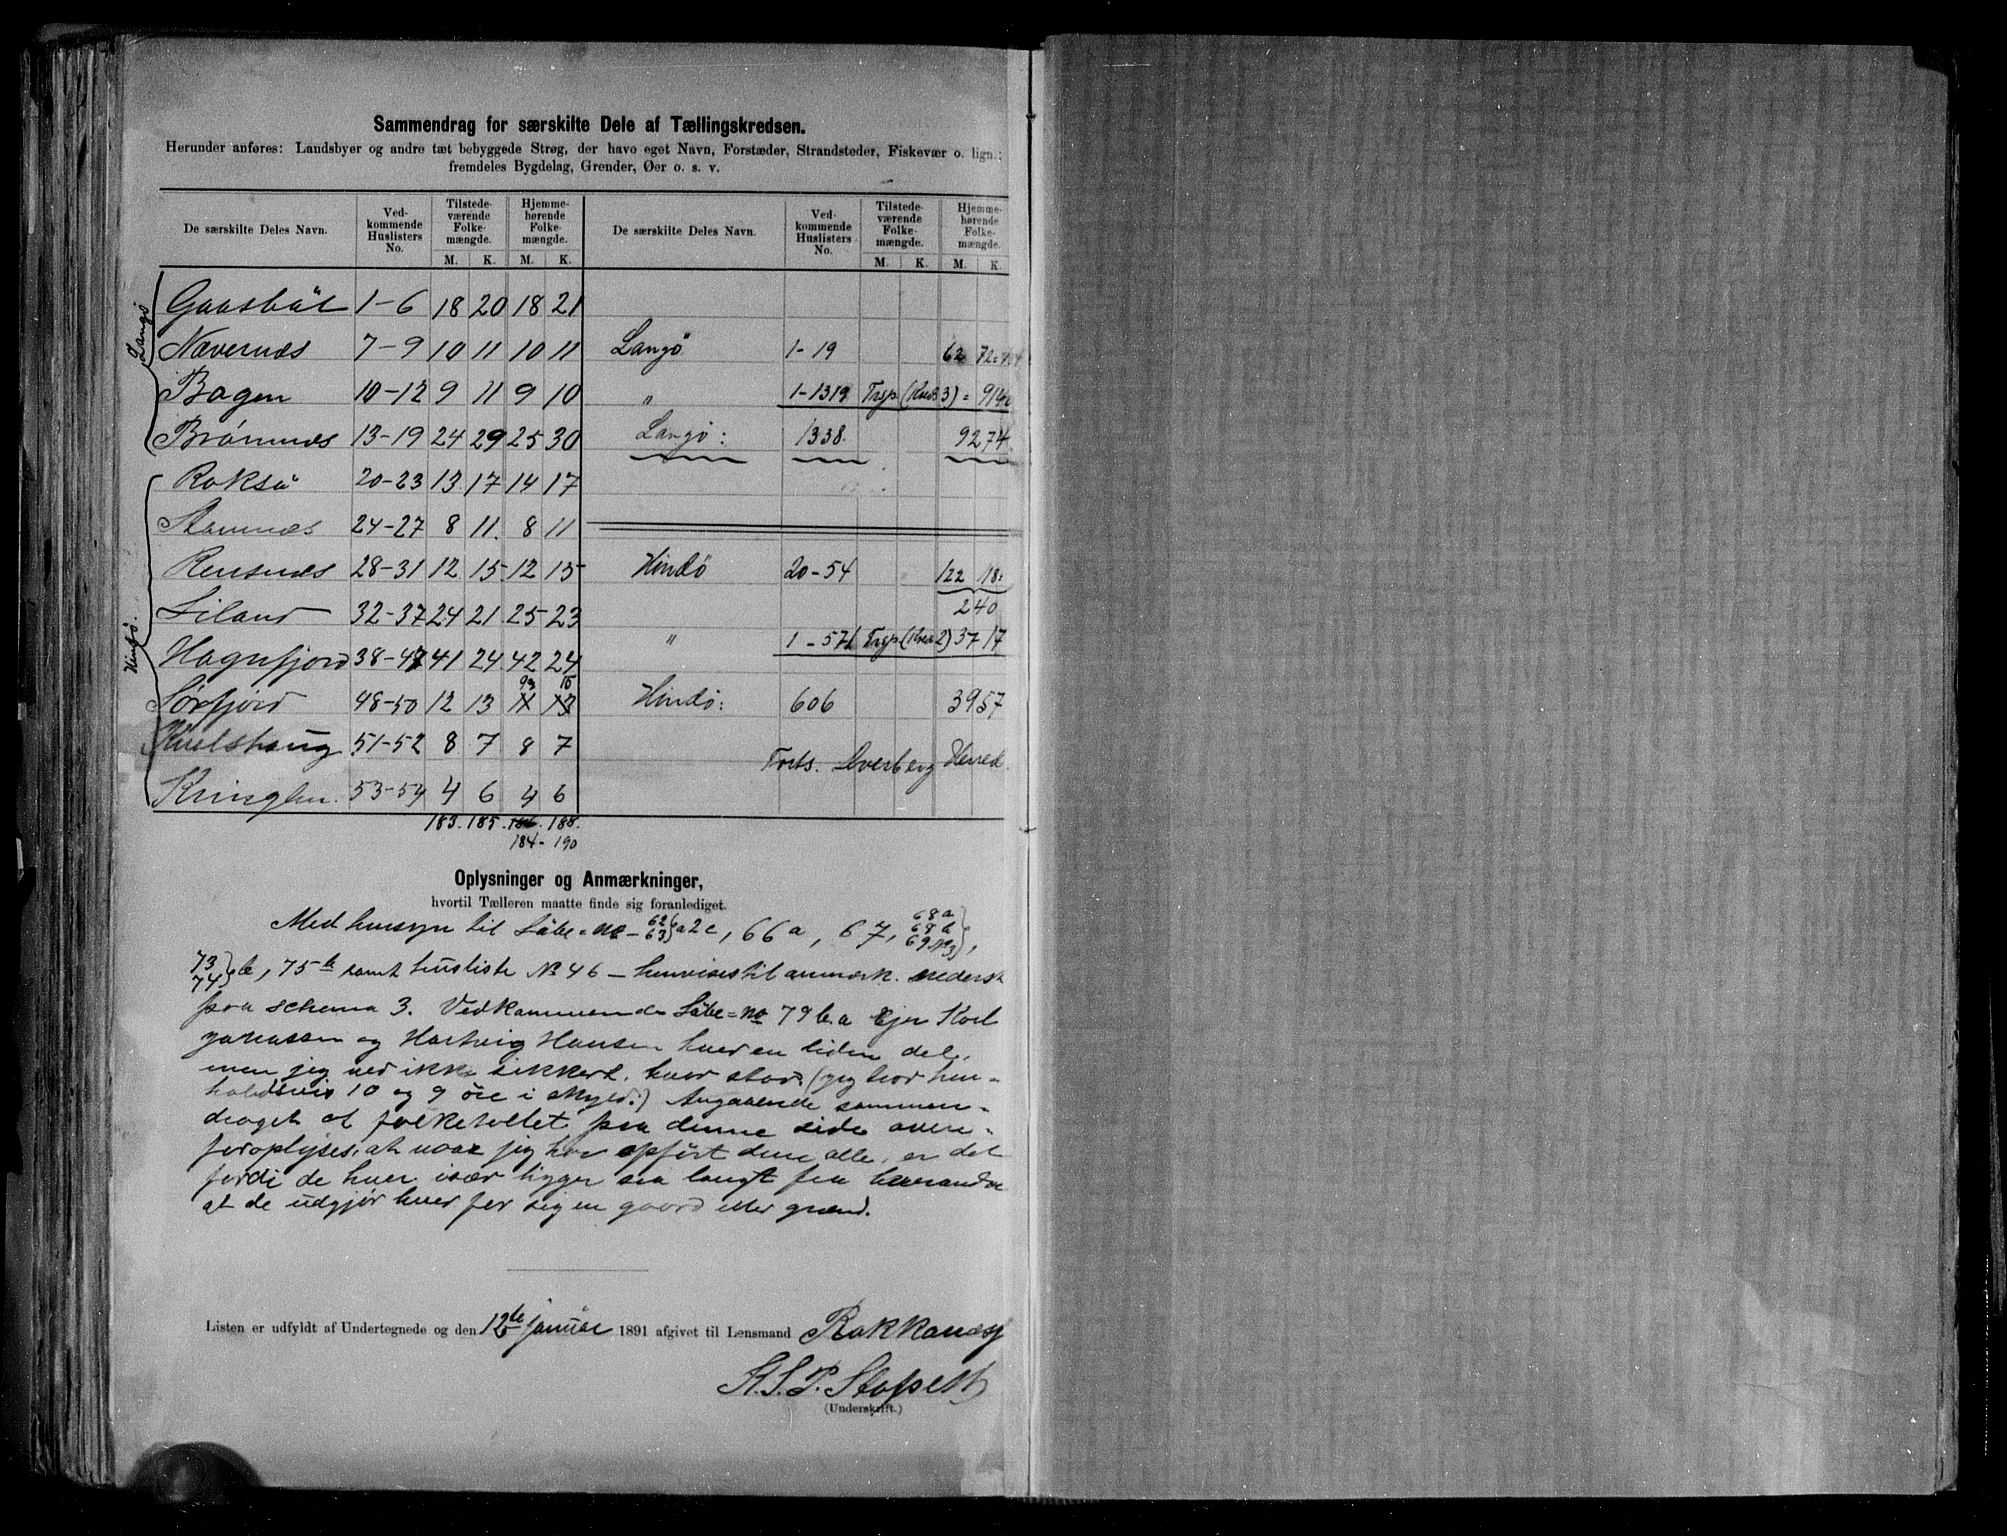 Sammendrag for særskilte Dele af Tællingskredsen.
Herunder anføres: Landsbyer og andre tæt bebyggede Strøg, der have eget Navn, Forstæder, Strandsteder, Fiskevær o. lign.;
fremdeles Bygdelag, Grender, Øer o. s. v.
De særskilte Deles Navn. Ved-kommende Huslisters No. Tilstede-værende Folke-mængde. Hjemme-hørende Folke-mængde. De særskilte Deles Navn. Ved-kommende Huslisters No. Tilstede-værende Folke-mængde. Hjemme-hørende Folke-mængde.
M. K. M. K. M. K. M. K.
Langø
Gaasbøl 1-6 18 20 18 21
Nævernæs 7-9 10 11 10 11 Langö 1-19 62 72
Bogen 10-12 9 11 9 10 " 1-1319
Brönnæs 13-19 24 29 25 30 Langö: 1338. 9274
Hindø.
Roksø 20-23 13 17 14 17
Stamnæs 24-27 8 11. 8 11
Rensnæs 28-31 12 15 12 15 Hindö 20-54 122
Liland 32-37 24 21 25 23 240
Hognfjord 38-47 41 24 42 24 " 1-571 3717
Sørfjord 48-50 12 13 13 Hindö: 606 3957
51-52 8 7 8 7 Forts. Dverberg Herred.
Kringlen. 53-54 4 6 4 6
183. 185. 188.
184- 190
Oplysninger og Anmærkninger,
hvortil Tælleren maatte finde sig foranlediget.
Med hensyn til Löbe=no 62 63 a2c, 66a, 67, 68a 68b 69
73 74 b, 75b samt husliste No 46 — henvises til anmærk. nederst
paa schema 3. Vedkommende Löbe=no 79 b.a Ejer Karl
og Hartvig Hansen hver en liden del,
men jeg ved ikke sikkert, hvor stor. (jeg tror hen-
holdsvis 10 og 9 öre i skyld.) Angaaende sammen-
draget af folketallet paa denne side
at naar jeg har opført dem alle, er det
fordi de hver især ligger saa langt fra hverandre
at de udgjør hver for sig en gaard eller grænd.
Listen er udfyldt af Undertegnede og den 12te januar 1891 afgivet til Lensmand Rokkones
(Underskrift.)